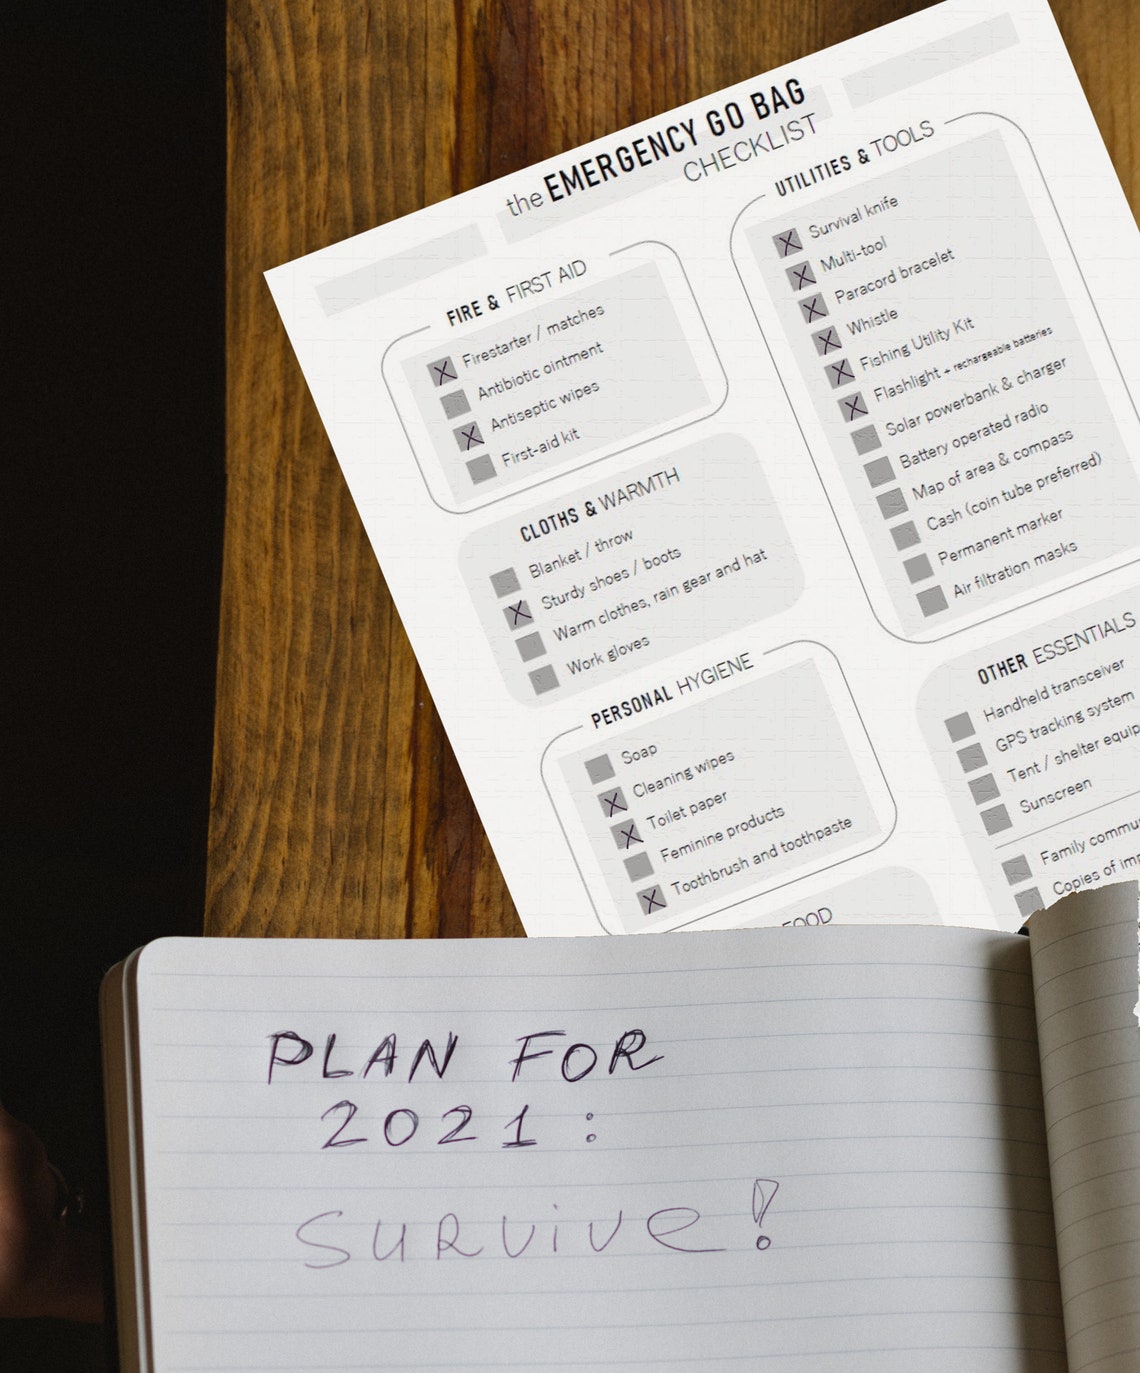 the EMERGENCY GO BAG
CHECKLIST
FIRE & FIRST AID
Firestarter / matches
Antibiotic ointment
Antiseptic wipes
First-aid kit
CLOTHS & WARMTH
Blanket / throw
Sturdy shoes / boots
Warm clothes, rain gear and hat
Work gloves
PERSONAL HYGIENE
Soap
Cleaning wipes
Toilet paper
Feminine products
Toothbrush and toothpaste
FOOD
UTILITIES & TOOLS
Survival knife
Multi-tool
Paracord bracelet
Whistle
Fishing Utility Kit
Flashlight + rechargeable batteries
Solar powerbank & charger
Battery operated radio
Map of area & compass
Cash (coin tube preferred)
Permanent marker
Air filtration masks
OTHER ESSENTIALS
Handheld transceiver
GPS tracking system
Tent / shelter
Sunscreen
Family
Copies of
PLAN FOR
2021:
SURVIVE!